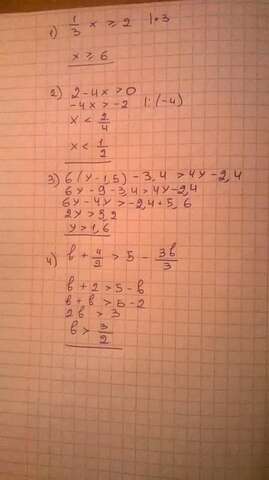 1) 1/3 x ≥ 2 | · 3
x ≥ 6
2) 2 - 4x > 0
-4x > -2 | : (-4)
x < 2/4
x < 1/2
3) 6 (y - 1,5) - 3,4 > 4y - 2,4
6y - 9 - 3,4 > 4y - 2,4
6y - 4y > -2,4 + 5,6
2y > 3,2
y > 1,6
4) b + 4/2 > 5 - 3b/3
b + 2 > 5 - b
b + b > 5 - 2
2b > 3
b > 3/2